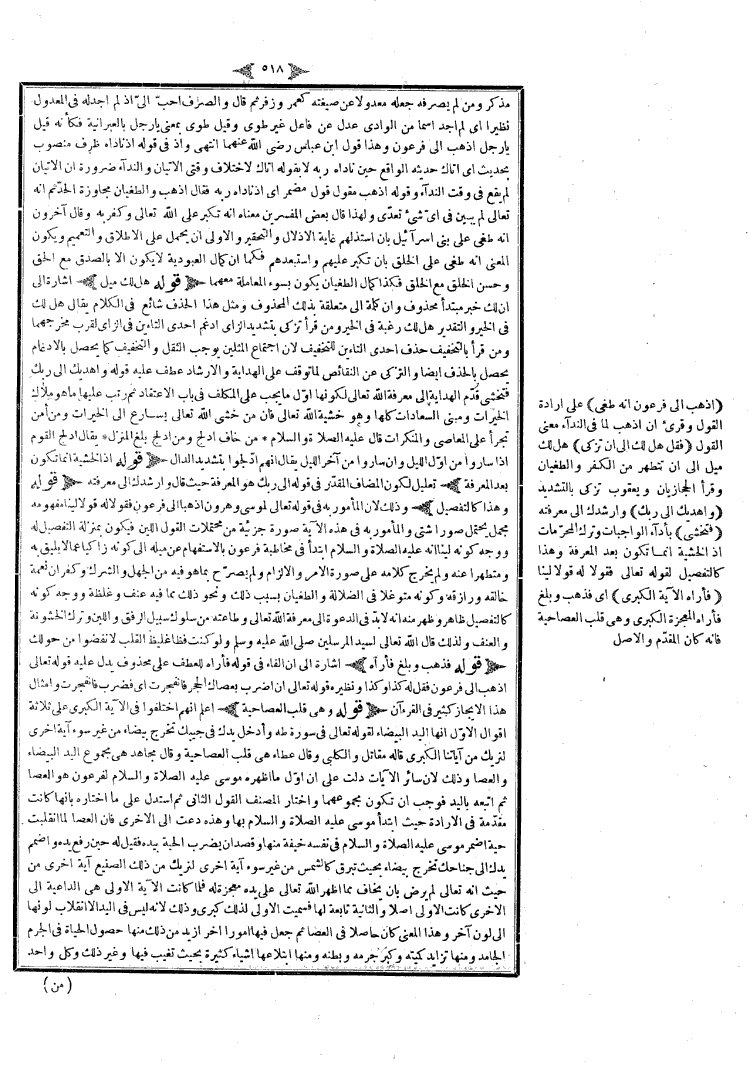 ﴿ ٥١٨ ﴾
مذكر ومن لم يصرفه جعله معدولا عن صيغته كعمر وزفر ثم قال والصرف احب الىّ اذ لم اجد له فى المعدول
نظيرا اى لم اجد اسما من الوادى عدل عن فاعل غير طوى وقيل طوى بمعنى يارجل بالعبرانية فكأنه قيل
يارجل اذهب الى فرعون وهذا قول ابن عباس رضى الله عنهما انتهى واذ فى قوله اذ ناداه ظرف منصوب
بحديث اى اتاك حديثه الواقع حين ناداه ربه لا بقوله اتاك لاختلاف وقتى الاتيان والندآء ضرورة ان الاتيان
لم يقع فى وقت الندآء وقوله اذهب مقول قول مضمر اى اذ ناداه ربه فقال اذهب والطغيان مجاوزة الحد ثم انه
تعالى لم يبين فى اىّ شئ تعدّى ولهذا قال بعض المفسرين معناه انه تكبر على الله تعالى وكفر به وقال آخرون
انه طغى على بنى اسرآئيل بان استذلهم غاية الاذلال والتحقير والاولى ان يحمل على الاطلاق والتعميم ويكون
المعنى انه طغى على الخلق بان تكبر عليهم واستعبدهم فكما ان كمال العبودية لايكون الا بالصدق مع الحق
وحسن الخلق مع الخلق فكذا كمال الطغيان يكون بسوء المعاملة معهما ﴿ قوله هل لك ميل ﴾ اشارة الى
ان لك خبر مبتدأ محذوف وان كلمة الى متعلقة بذلك المحذوف ومثل هذا الحذف شائع فى الكلام يقال هل لك
فى الخير والتقدير هل لك رغبة فى الخير ومن قرأ تزكى بتشديد الزاى ادغم احدى التاءين فى الزاى لقرب مخرجهما
ومن قرأ بالتخفيف حذف احدى التاءين للتخفيف لان اجتماع المثلين يوجب الثقل والتخفيف كما يحصل بالادغام
يحصل بالحذف ايضا والتزكى عن النقائص لما توقف على الهداية والارشاد عطف عليه قوله واهديك الى ربك
فتخشى قدّم الهداية الى معرفة الله تعالى لكونها اوّل ما يجب على المكلف فى باب الاعتقاد ثم رتب عليها ما هو ملاك
الخيرات ومبنى السعادات كلها وهو خشية الله تعالى فان من خشى الله تعالى يسارع الى الخيرات ومن أمن
تجرأ على المعاصى والمنكرات قال عليه الصلاة والسلام * من خاف ادلج ومن ادلج بلغ المنزل * يقال ادلج القوم
اذا ساروا من اوّل الليل وان ساروا من آخر الليل يقال انهم ادّلجوا بتشديد الدال ﴿ قوله اذ الخشية انما تكون
بعد المعرفة ﴾ تعليل لكون المضاف المقدّر فى قوله الى ربك هو المعرفة حيث قال وارشدك الى معرفته ﴿ قوله
وهذا كالتفصيل ﴾ وذلك لان المأمور به فى قوله تعالى لموسى وهرون اذهبا الى فرعون فقولا له قولا لينا مفهومه
مجمل يحتمل صورا شتى والمأمور به فى هذه الآية صورة جزئية من محتملات القول اللين فيكون بمنزلة التفصيل له
ووجه كونه لينا انه عليه الصلاة والسلام ابتدأ فى مخاطبة فرعون بالاستفهام عن ميله الى كونه زاكيا عما لايليق به
ومتطهرا عنه ولم يخرج كلامه على صورة الامر والالزام ولم يصرّح بما هو فيه من الجهل والشرك وكفران نعمة
خالقه ورازقه وكونه متوغلا فى الضلالة والطغيان بسبب ذلك ونحو ذلك مما فيه عنف وغلظة ووجه كونه
كالتفصيل ظاهر وظهر منه انه لابدّ فى الدعوة الى معرفة الله تعالى وطاعته من سلوك سبيل الرفق واللين وترك الخشونة
والعنف ولذلك قال الله تعالى لسيد المرسلين صلى الله عليه وسلم ولو كنت فظا غليظ القلب لانفضوا من حولك
﴿ قوله فذهب وبلغ فأرآه ﴾ اشارة الى ان الفاء فى قوله فأراه للعطف على محذوف يدل عليه قوله تعالى
اذهب الى فرعون فقل له كذا وكذا ونظيره قوله تعالى ان اضرب بعصاك الحجر فانفجرت اى فضرب فانفجرت وامثال
هذا الايجاز كثير فى القرءآن ﴿ قوله وهى قلب العصا حية ﴾ اعلم انهم اختلفوا فى الآية الكبرى على ثلاثة
اقوال الاوّل انها اليد البيضاء لقوله تعالى فى سورة طه وأدخل يدك فى جيبك تخرج بيضاء من غير سوء آية اخرى
لنريك من آياتنا الكبرى قاله مقاتل والكلبى وقال عطاء هى قلب العصا حية وقال مجاهد هى مجموع اليد البيضاء
والعصا وذلك لان سائر الآيات دلت على ان اوّل ما اظهره موسى عليه الصلاة والسلام لفرعون هو العصا
ثم اتبعه باليد فوجب ان تكون بمجموعهما واختار المصنف القول الثانى ثم استدل على ما اختاره بانها كانت
مقدّمة فى الارادة حيث ابتدأ موسى عليه الصلاة والسلام بها وهذه دعت الى الاخرى فان العصا لما انقلبت
حية اضمر موسى عليه الصلاة والسلام فى نفسه خيفة منها وقصد ان يضرب الحية بيده فقيل له حين رفع يده واضمم
يدك الى جناحك تخرج بيضاء بحيث تبرق كالشمس من غير سوء آية اخرى لنريك من ذلك الصنيع آية اخرى من
حيث انه تعالى لم يرض بان يخاف مما اظهر الله تعالى على يده معجزة له فلما كانت الآية الاولى هى الداعية الى
الاخرى كانت الاولى اصلا والثانية تابعة لها فسميت الاولى لذلك كبرى وذلك لانه ليس فى اليد الا انقلاب لونها
الى لون آخر وهذا المعنى كان حاصلا فى العصا ثم جعل فيها امورا اخر ازيد من ذلك منها حصول الحياة فى الجرم
الجامد ومنها تزايد كميته وكبر جرمه وبطنه ومنها ابتلاعها اشياء كثيرة بحيث تغيب فيها وغير ذلك وكل واحد
(من)
(اذهب الى فرعون انه طغى) على ارادة
القول وقرئ ان اذهب لما فى الندآء معنى
القول (فقل هل لك الى ان تزكى) هل لك
ميل الى ان تتطهر من الكفر والطغيان
وقرأ الحجازيان ويعقوب تزكى بالتشديد
(واهديك الى ربك) وارشدك الى معرفته
(فتخشى) بأدآء الواجبات وترك المحرّمات
اذ الخشية انما تكون بعد المعرفة وهذا
كالتفصيل لقوله تعالى فقولا له قولا لينا
(فأراه الآية الكبرى) اى فذهب وبلغ
فأراه المعجزة الكبرى وهى قلب العصا حية
فانه كان المقدّم والاصل